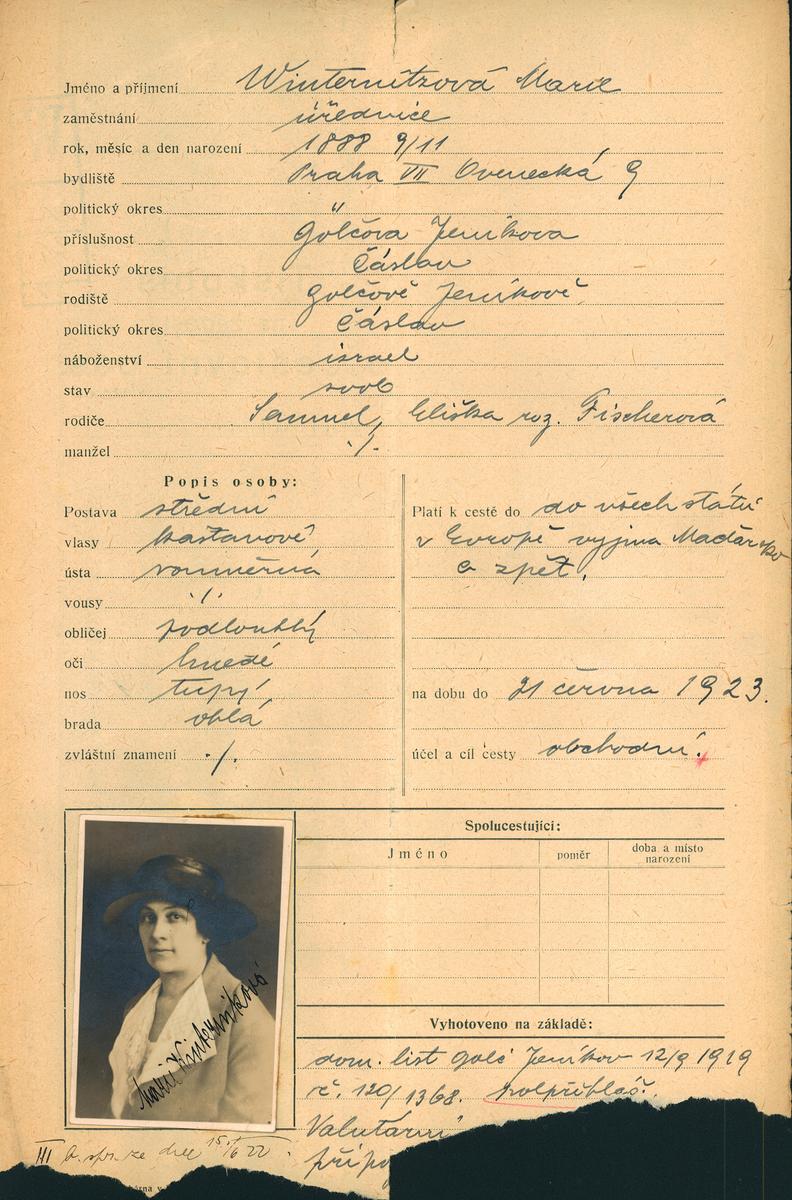 Jméno a příjmení Winternitzová Marie
zaměstnání úřednice
rok, měsíc a den narození 1888 9/11
bydliště Praha VII Ovenecká 9
politický okres "
příslušnost Golčova Jeníkova
politický okres Čáslav
rodiště Golčově Jeníkově
politický okres Čáslav
náboženství israel
stav svob
rodiče Samuel, Eliška roz. Fischerová
manžel ./.
Popis osoby:
Postava střední
vlasy kaštanové
ústa souměrná
vousy ./.
obličej podlouhlý
oči hnědé
nos tupý
brada oblá
zvláštní znamení ./.
Platí k cestě do do všech států
v Evropě vyjma Maďarsko
a zpět.
na dobu do 21 června 1923.
účel a cíl cesty obchodní.
Spolucestující:
Jméno poměr doba a místo narození
Marie Winterniková
Vyhotoveno na základě:
dom. list Golč Jeníkov 12/9 1919
č. 120/1368. polpřihláš.
Valutární
III